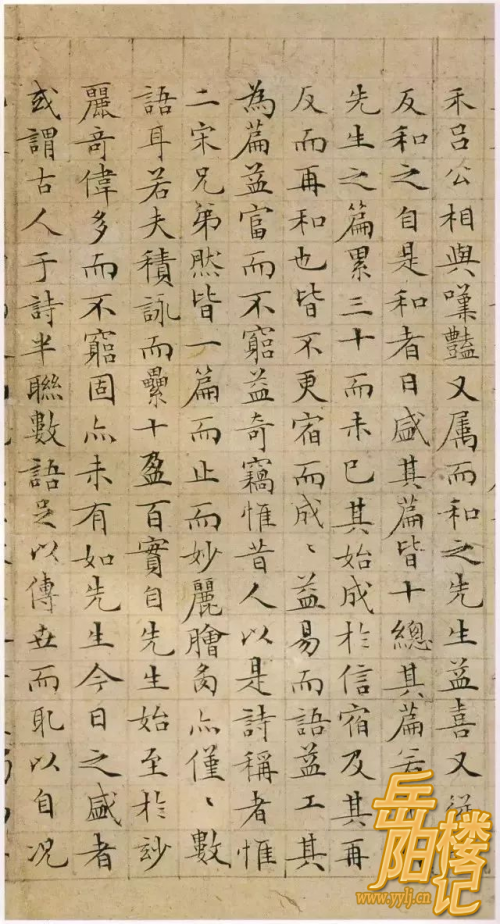 禾吕公相與嘆豔又属而和之先生益喜又從
反和之自是和者日盛其篇皆十總其篇若
先生之篇累三十而未已其始成於信宿及其再
反而再和也皆不更宿而成〻益易而語益工其
為篇益富而不窮益奇竊惟昔人以是詩稱者惟
二宋兄弟然皆一篇而止而妙麗膾炙亦僅〻數
語耳若夫積詠而纍十盈百實自先生始至於玅
麗奇偉多而不窮固亦未有如先生今日之盛者
或謂古人于詩半聯數語足以傳世而以自況
岳阳楼记
www.yylj.cn